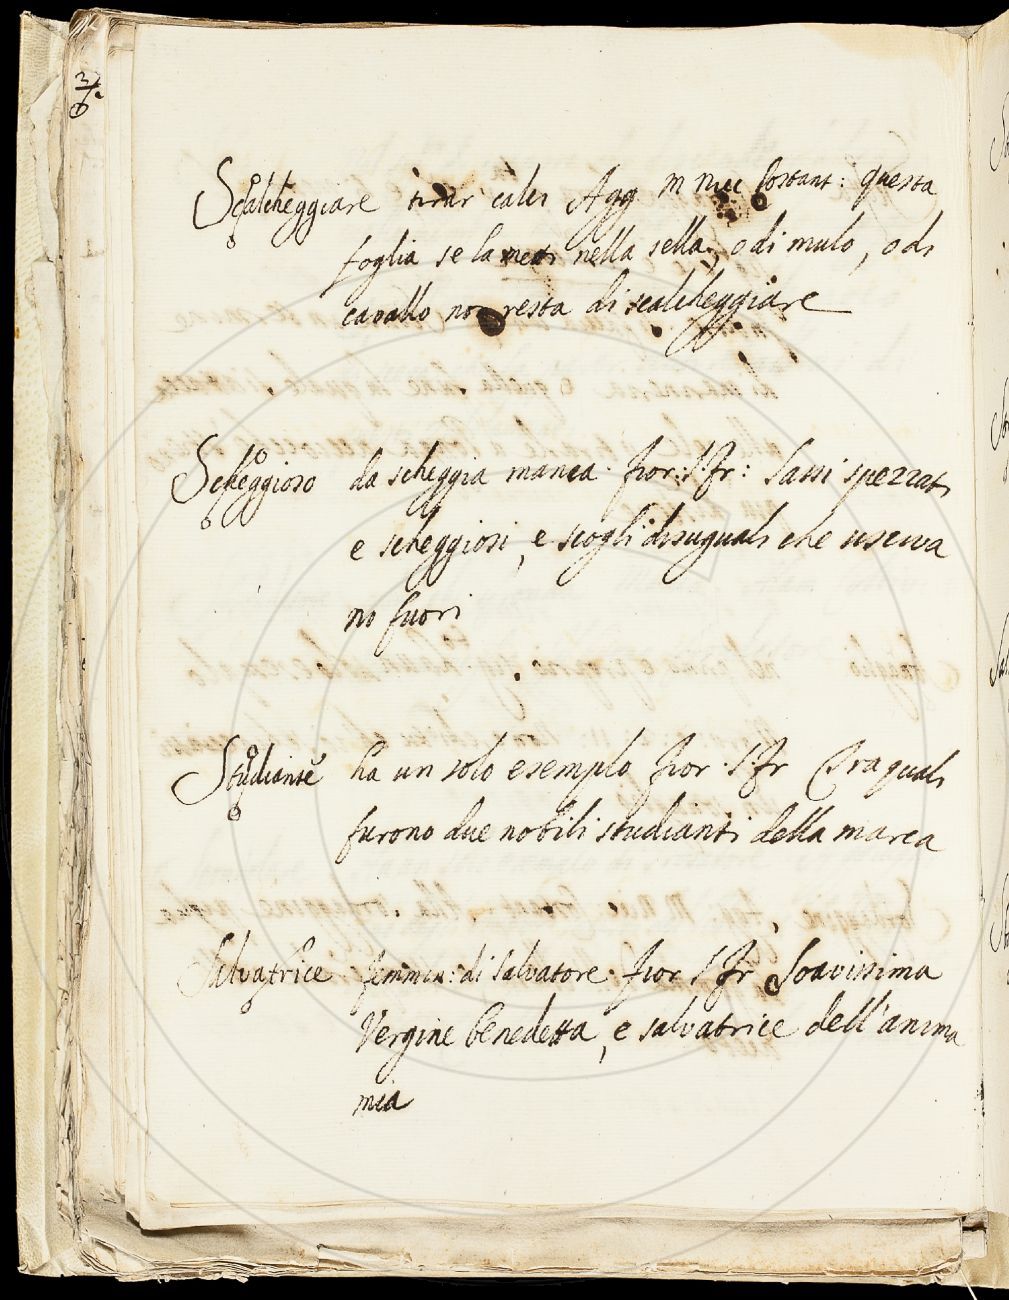 Scalcheggiare tirar calci Agg M Nicc Costant: questa
foglia se la metti nella sella, o di mulo, o di
cavallo non resta di scalcheggiare
Scheggioso da scheggia manca. fior: S: Fr: Sassi spezzati
e scheggiosi, e scogli disuguali che usciva
no fuori
Studiante ha un solo esempio fior. S: Fr Tra quali
furono due nobili studianti della marca
Salvatrice femmin: di salvatore. fior S Fr Soavissima
Vergine benedetta, e salvatrice dell'anima
mia